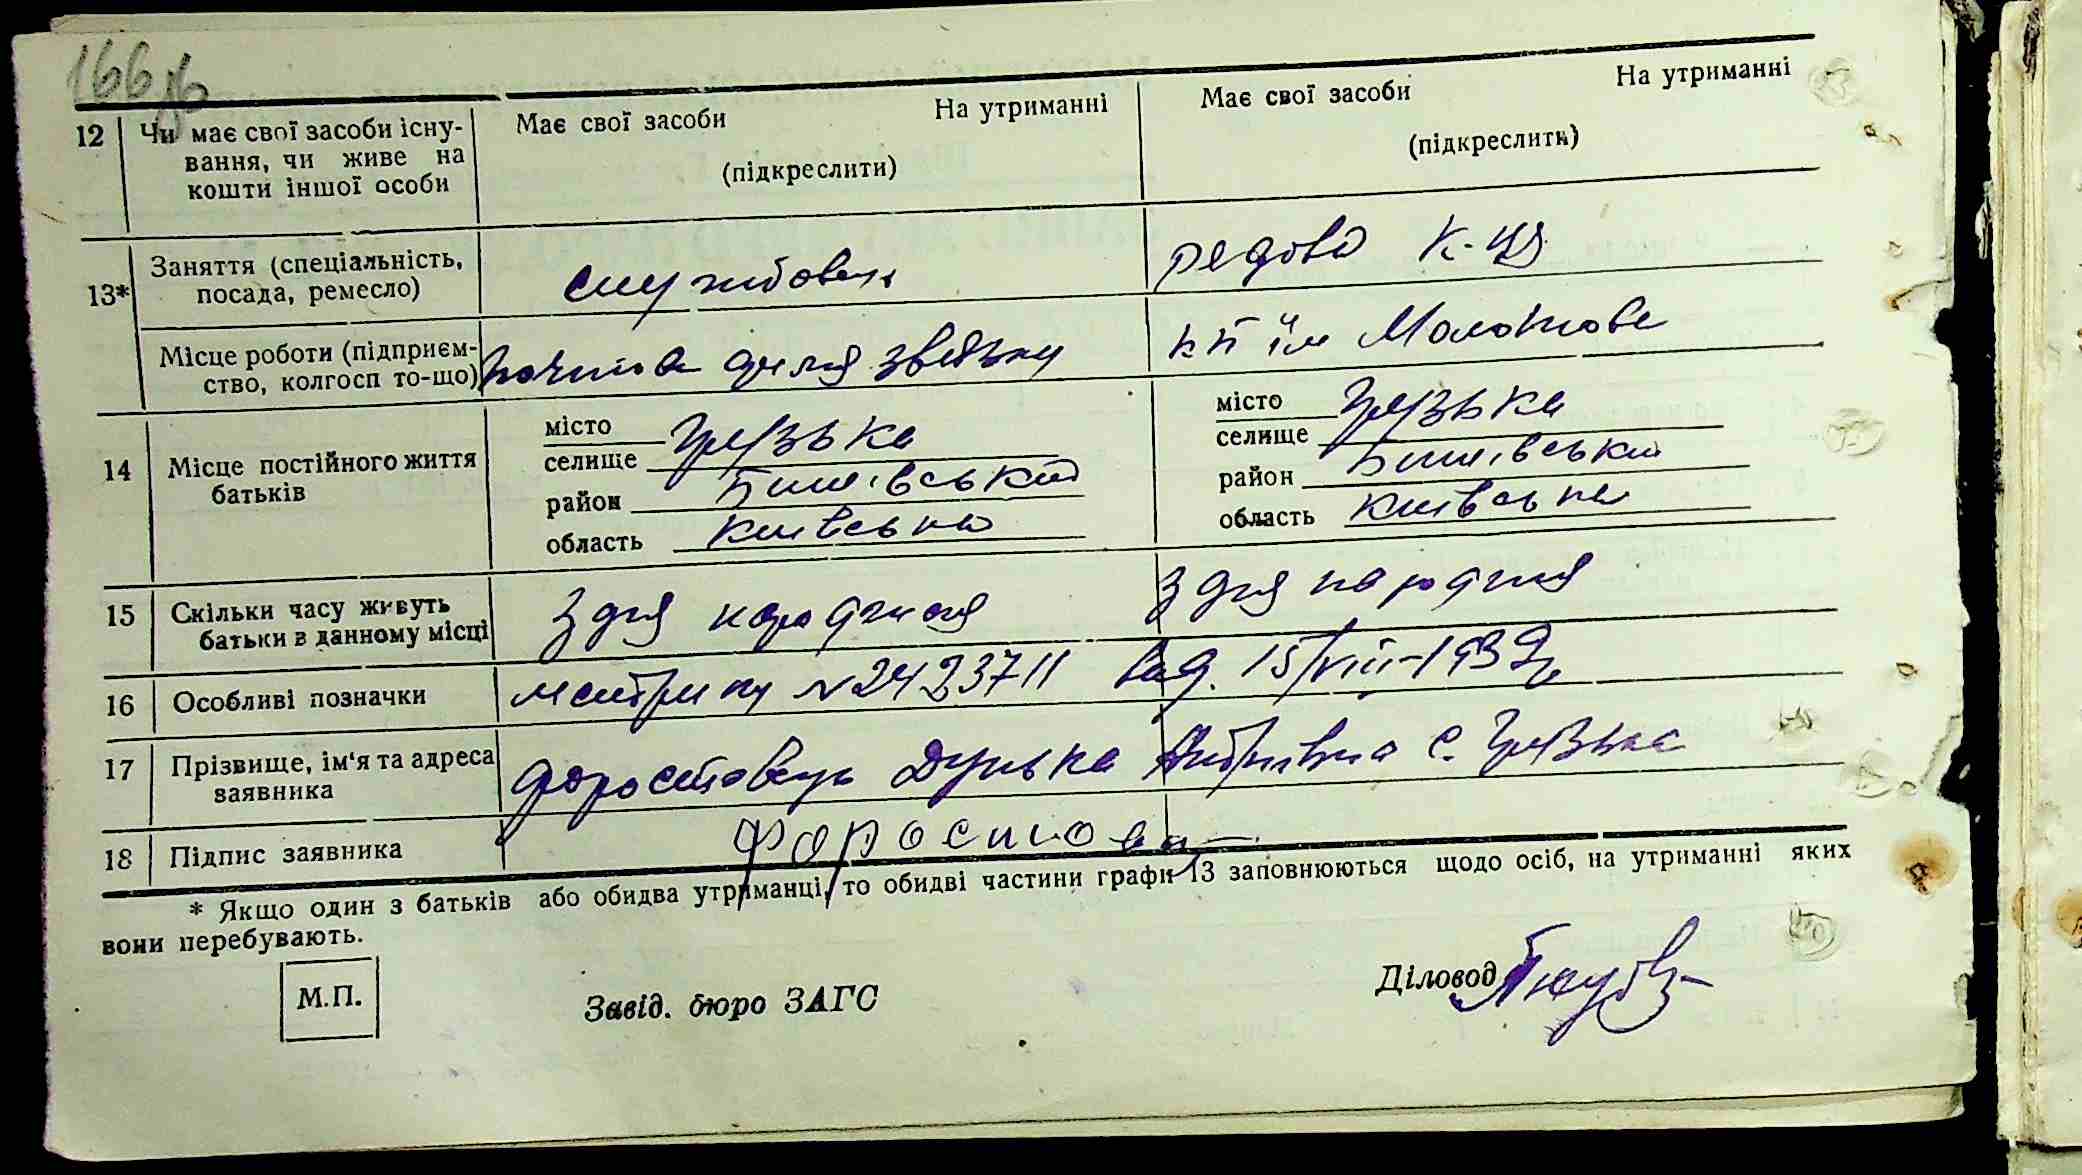 166 зв
Має свої засоби На утриманні Має свої засоби На утриманні
12 Чи має свої засоби існу-
вання, чи живе на
кошти іншої особи
(підкреслити) (підкреслити)
13* Заняття (спеціальність,
посада, ремесло)
службовець
редова к-ця
Місце роботи (підприєм-
ство, колгосп то-що)
почтова звязку
кг ім Молотова
14 Місце постійного життя
батьків
місто
селище Грузька
район Бишівський
область Київська
місто
селище Грузька
район Бишівський
область Київська
15 Скільки часу живуть
батьки в данному місці
З дня народження З дня народня
16 Особливі позначки
метрику №2423711 вид. 15/VIII-1939 р
17 Прізвище, ім'я та адреса
заявника
Форостовець Дунька с. Грузька
18 Підпис заявника
Форостове
* Якщо один з батьків або обидва утриманці, то обидві частини графи 13 заповнюються щодо осіб, на утриманні яких
вони перебувають.
М.П.
Завід. бюро ЗАГС
Діловод